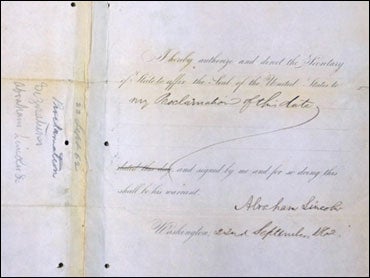 I hereby authorize and direct the Secretary
of State to affix the Seal of the United States to
my Proclamation of this date
dated this day and signed by me and for so doing this
shall be his warrant.
Abraham Lincoln
Washington, 22nd September, 1862
Proclamation
22 Sept 62
by President
Abraham Lincoln